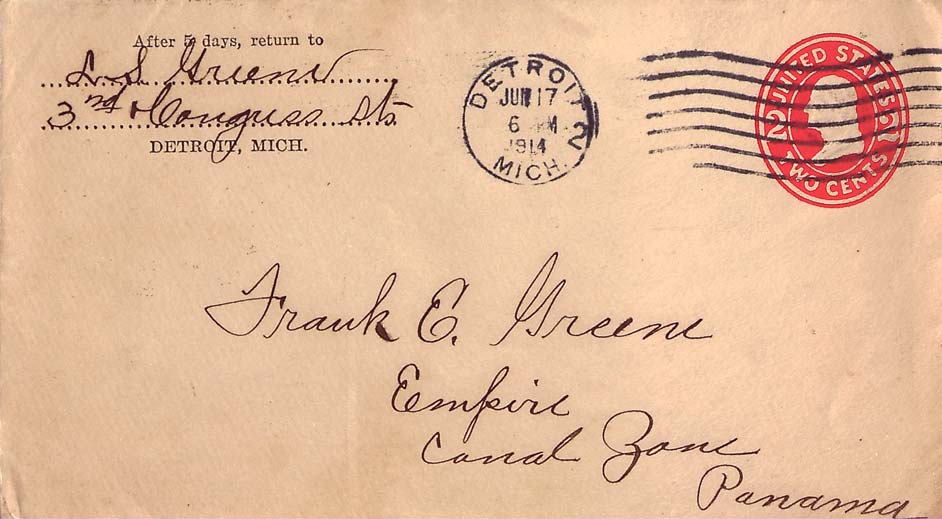 After 5 days, return to
L. S. Greene
3rd & Congress Sts
DETROIT, MICH.
DETROIT 2
JUN 17
6 M
1914
MICH.
UNITED STATES
2 2
TWO CENTS
Frank E. Greene
Empire
Canal Zone
Panama